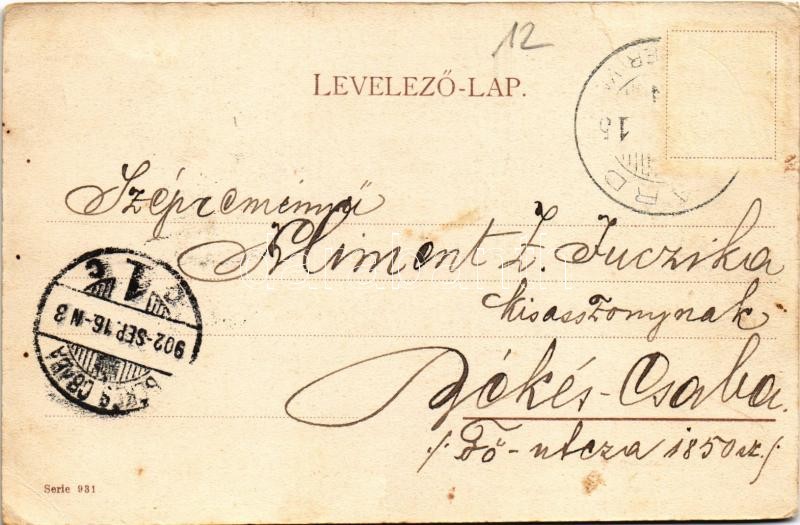 12
LEVELEZŐ-LAP.
15
Szépreményű
Kliment Z. Juczika
kisasszonynak
Békés-Csaba.
/: Fő-utcza 1850 sz. /
902-SEP.16-N 3
BÉKÉS CSABA
C 1 C
Serie 931